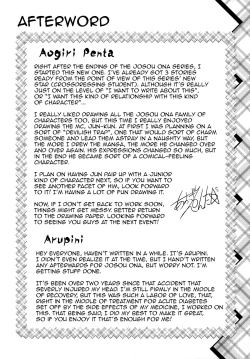 AFTERWORD
Aogiri Penta
RIGHT AFTER THE ENDING OF THE JOSOU ONA SERIES,
I STARTED THIS NEW ONE. I'VE ALREADY GOT 3 STORIES
READY FROM THE POINT OF VIEW OF THIS SERIES' NEW
STAR (CROSSDRESSING STUDENT). ALTHOUGH IT'S REALLY
JUST ON THE LEVEL OF "I WANT TO WRITE ABOUT THIS",
OR "I WANT THIS KIND OF RELATIONSHIP WITH THIS KIND
OF CHARACTER"...
I REALLY LIKED DRAWING ALL THE JOSOU ONA FAMILY OF
CHARACTERS TOO, BUT THIS TIME I REALLY ENJOYED
DRAWING THE MC, JUN-KUN. AT FIRST I WAS PLANNING ON A
SORT OF "DEVILISH TRAP", ONE THAT WOULD SORT OF CHARM
SOMEONE AND LEAD THEM ASTRAY IN A NAUGHTY WAY, BUT
THE MORE I DREW THE MANGA, THE MORE HE CHANGED OVER
AND OVER AGAIN. HIS EXPRESSIONS CHANGED SO MUCH, BUT
IN THE END HE BECAME SORT OF A COMICAL-FEELING
CHARACTER.
I PLAN ON HAVING JUN PAIR UP WITH A JUNIOR
KIND OF CHARACTER NEXT, SO IF YOU WANT TO
SEE ANOTHER FACET OF HIM, LOOK FORWARD
TO IT! I'M HAVING A LOT OF FUN DRAWING IT.
NOW, IF I DON'T GET BACK TO WORK SOON,
THINGS MIGHT GET MESSY. BETTER RETURN
TO THE DRAWING PAPER. LOOKING FORWARD
TO SEEING YOU GUYS AT THE NEXT EVENT!
Arupini
HEY EVERYONE, HAVEN'T WRITTEN IN A WHILE. IT'S ARUPINI.
I DIDN'T EVEN REALIZE IT AT THE TIME, BUT I HADN'T WRITTEN
ANY AFTERWORDS FOR THIS JOSOU ONA, BUT WORRY NOT. I'M
GETTING STUFF DONE.
IT'S BEEN OVER TWO YEARS SINCE THAT ACCIDENT THAT
SEVERELY INJURED MY HEAD. I'M STILL FIRMLY IN THE MIDDLE
OF RECOVERY, BUT THIS WAS SUCH A LABOR OF LOVE, THAT,
RIGHT IN THE MIDDLE OF TREATMENT FOR ACUTE DIABETES
SET OFF BY THE SIDE EFFECTS OF MY MEDICINE, I WORKED ON
THIS. THAT BEING SAID, I DID MY BEST TO MAKE IT GREAT,
SO IF YOU ENJOY IT THAT'S ENOUGH FOR ME!